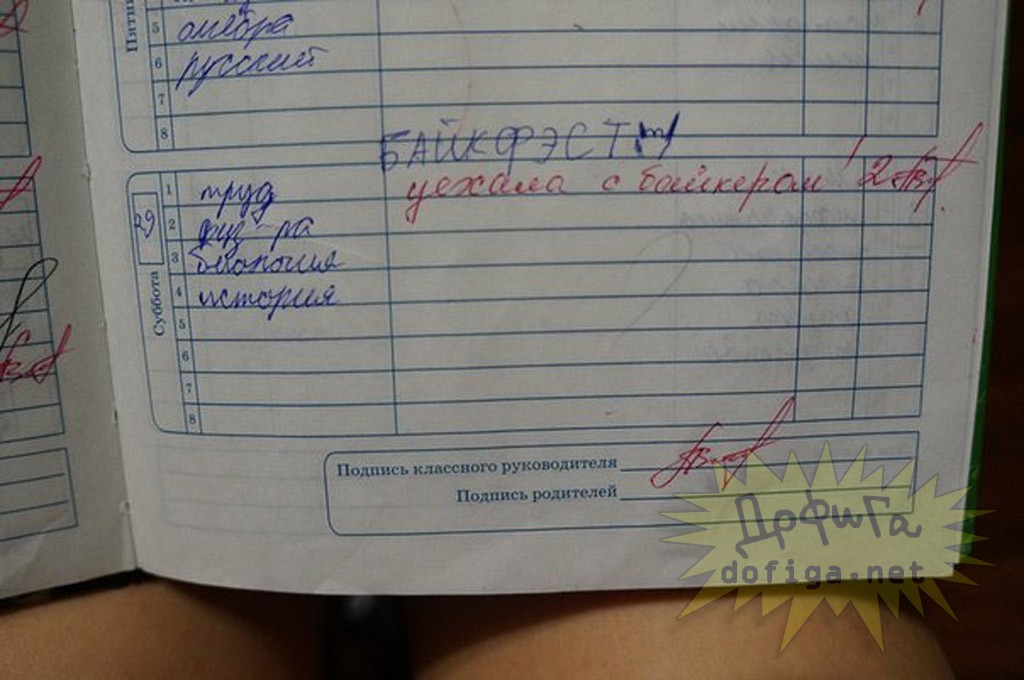 Пятни
5 алгебра
6 русский
7
8
БАЙКФЭСТ
уехала с байкером! 2
29
Суббота
1 труд
2 физ-ра
3 биология
4 история
5
6
7
8
Подпись классного руководителя
Подпись родителей
ДоФиГа
dofiga.net